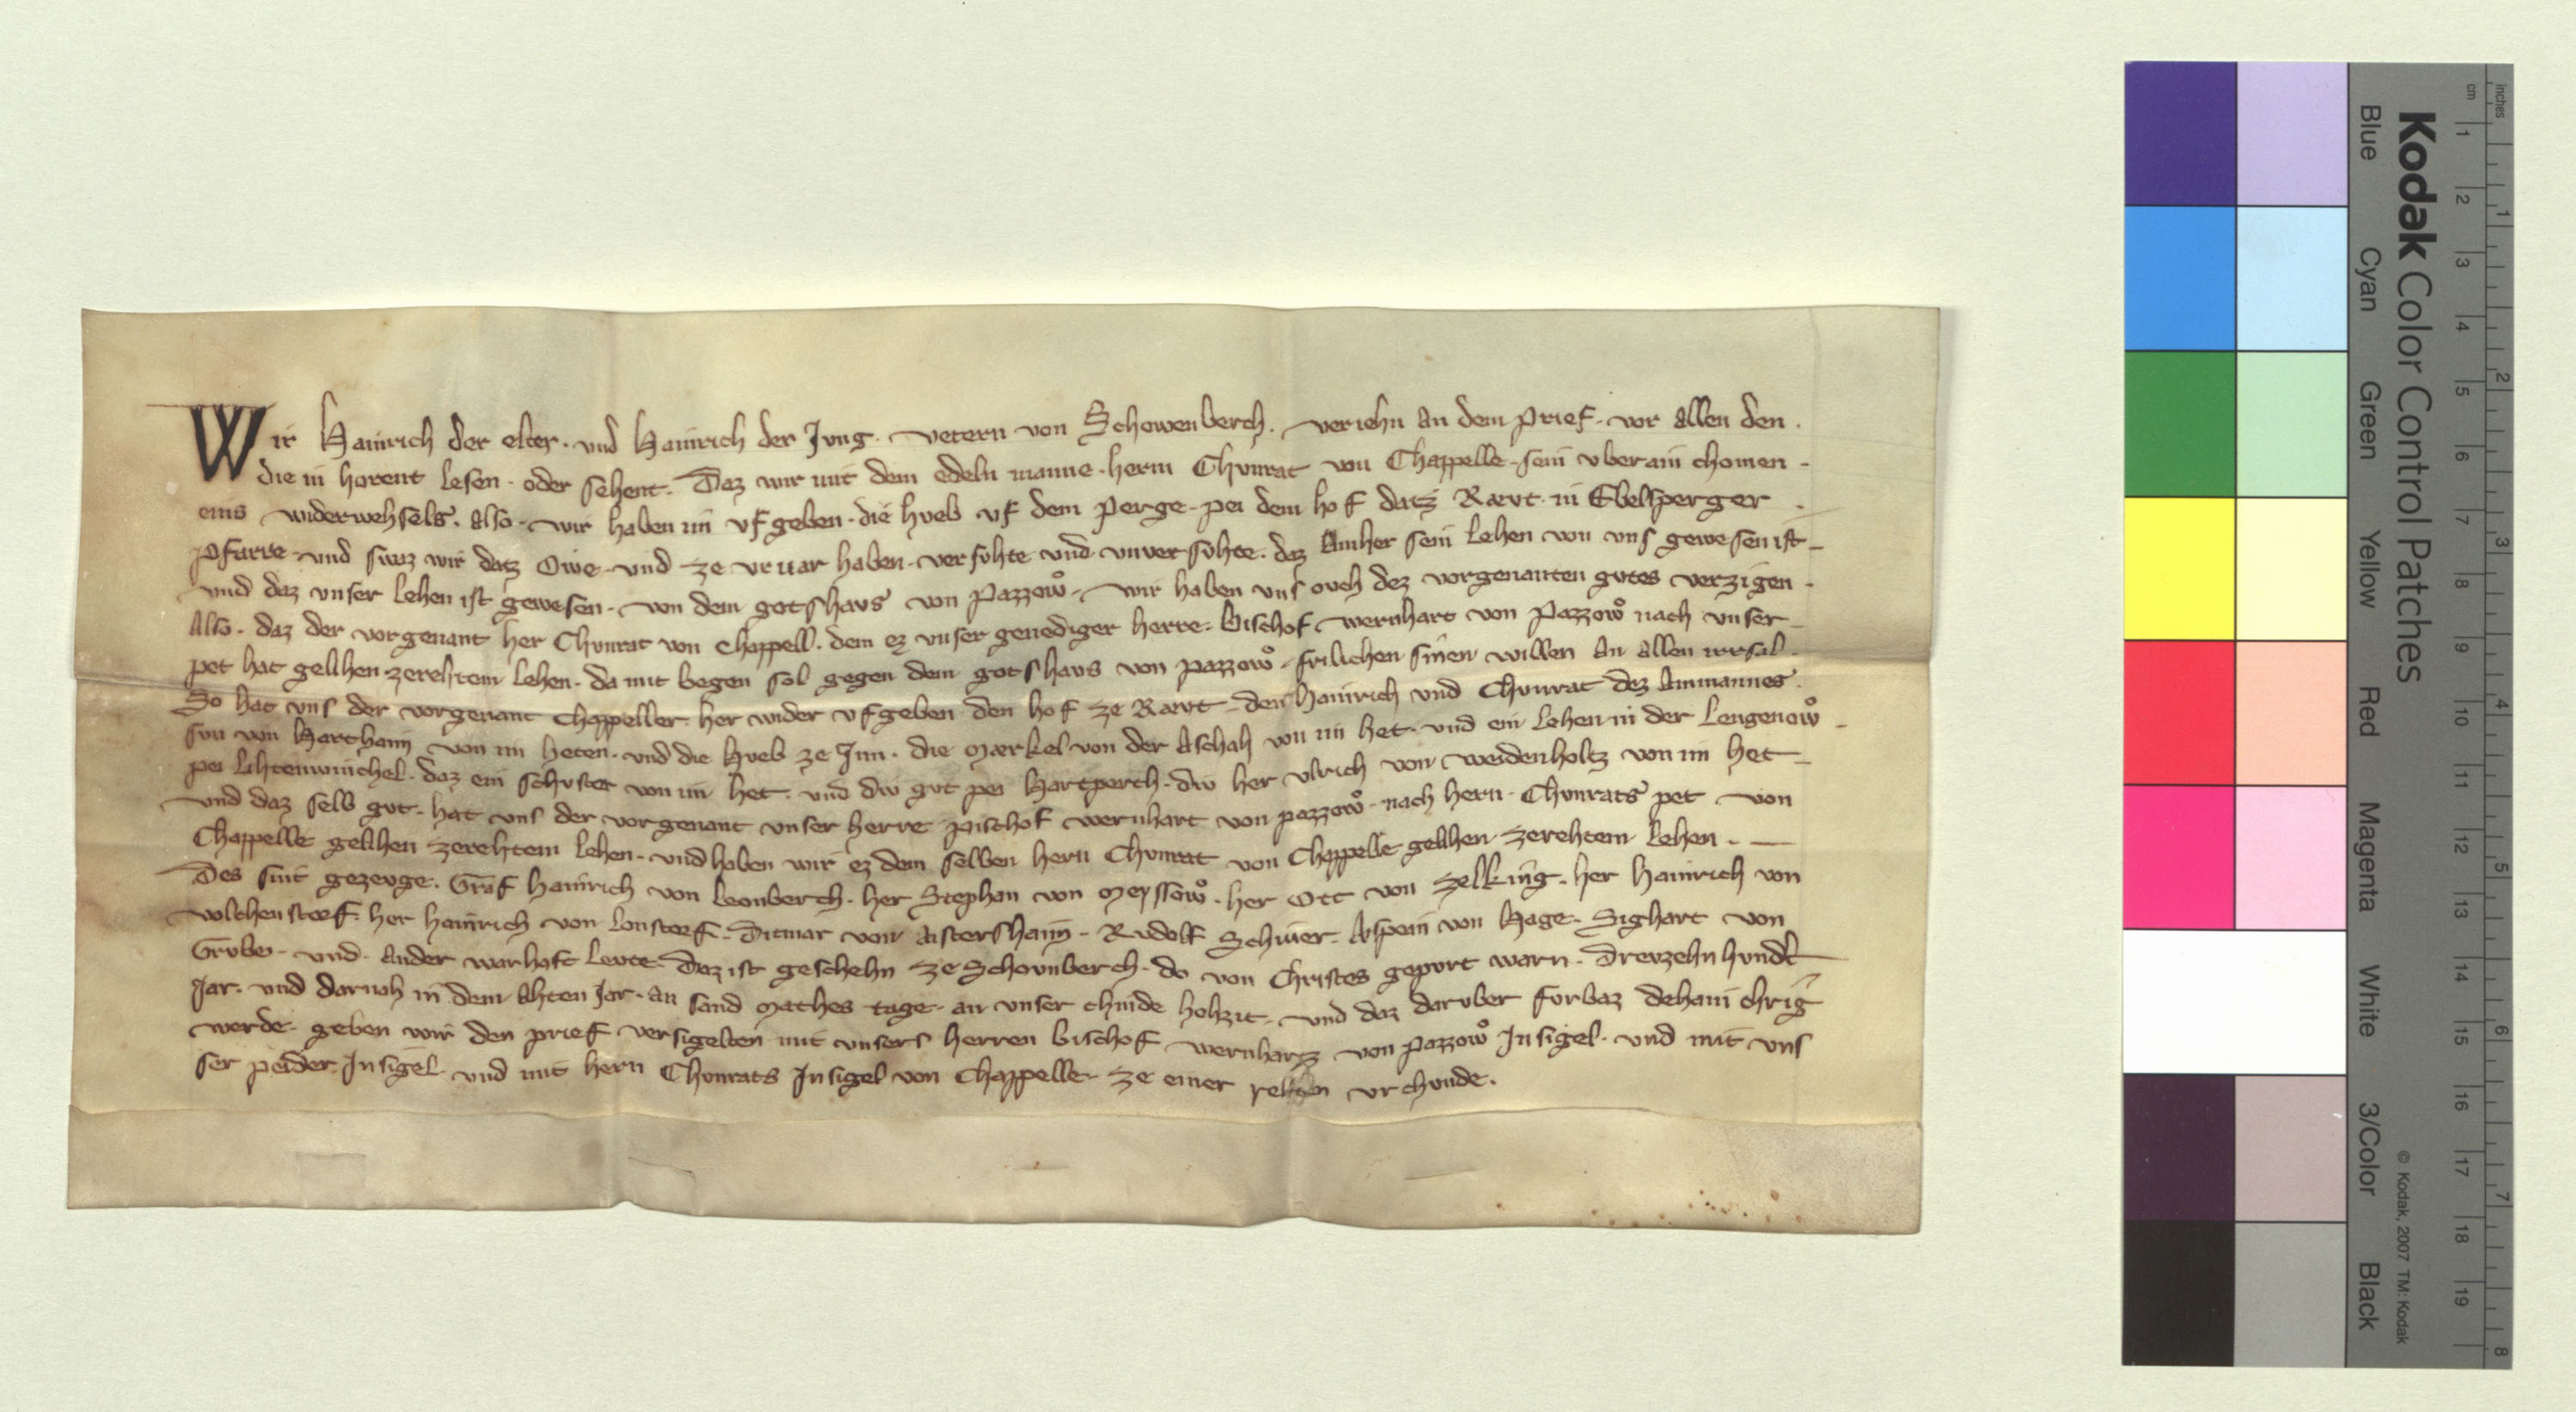 Wir Hainrich der elter · und Hainrich der Jvng · vetern von Schowenberch · veriehn an dem prief · vor allen den ·
die in horent lesen · oder sehent · Daz wir mit dem edeln manne · hern Chvnrat von Chappelle · sein vberain chomen ·
eins widerwehsels · Also · wir haben im vf geben · die hveb vf dem perge · pei dem hof datz Rævt · in Ebelsperger ·
pfarre · und swaz wir datz Owe · und ze vruar haben · versvhte und unversvhte · daz Amher sein lehen von uns gewesen ist
und daz unser lehen ist gewesen · von dem gotshavs von Pazzowͦ · wir haben uns ovch dez vorgenanten gvtes verzigen ·
Also · daz der vorgenant her Chvnrat von Chappell · dem ez unser genediger herre · Bischof wernhart von Pazzowͦ nach unser
pet hat gelihen zerehtem lehen · da mit begen sol gegen dem gotshavs von pazzowͦ · frilichen sinen willen an allen irrsal ·
So hat uns der vorgenant Chappeller her wider vfgeben den hof ze Rævt · den Hainrich und Chvnrat dez Ammannes
svn von Harthaim von im heten · und die Hveb ze Inn · die Mærkel von der Aschah von im het · und ein lehen in der Lengenowͦ ·
pei Lihtenwinchel · daz ein schvster von im het · und div gvt pei Hartperch · div her vlrich von weidenholtz von im het
und daz selb gvt · hat uns der vorgenant unser herre Pischof wernhart von pazzowͦ · nach hern · Chvnrats pet von
Chappelle gelihen zerehtem lehen · und haben wir ez dem selben hern Chvnrat von Chappelle gelihen zerehtem lehen ·
Des sint gezevge · Graf Hainrich von Leonberch · her Stephan von Meyssowͦ · her Ott von Zelking · her Hainrich von
volchenstorf · her hainrich von Lonstorf · Ditmar von Aistershaim · Rvdolf Schifer · Aspein von Hage · Sighart von
Grvbe · und · Ander warhaft levte · Daz ist geschehn ze Schovnberch · do von Christes gepvrt warn · Drevzehn hvndt
Jar · und darnah in dem Ahten Jar · an sand Mathes tage · an unser chinde hohzit · und daz darvber fvrbaz dehain chrig
werde · geben wir den prief versigelten mit unsers herren Bischof wernhartz von pazzowͦ Insigel · und mit uns
ser peider Insigel · und mit hern Chvnrats Insigel von Chappelle · ze einer rehten vrchvnde ·
Kodak Color Control Patches
Blue Cyan Green Yellow Red Magenta White 3/Color Black
© Kodak, 2007 TM: Kodak
cm 1 2 3 4 5 6 7 8 9 10 11 12 13 14 15 16 17 18 19
inches 1 2 3 4 5 6 7 8